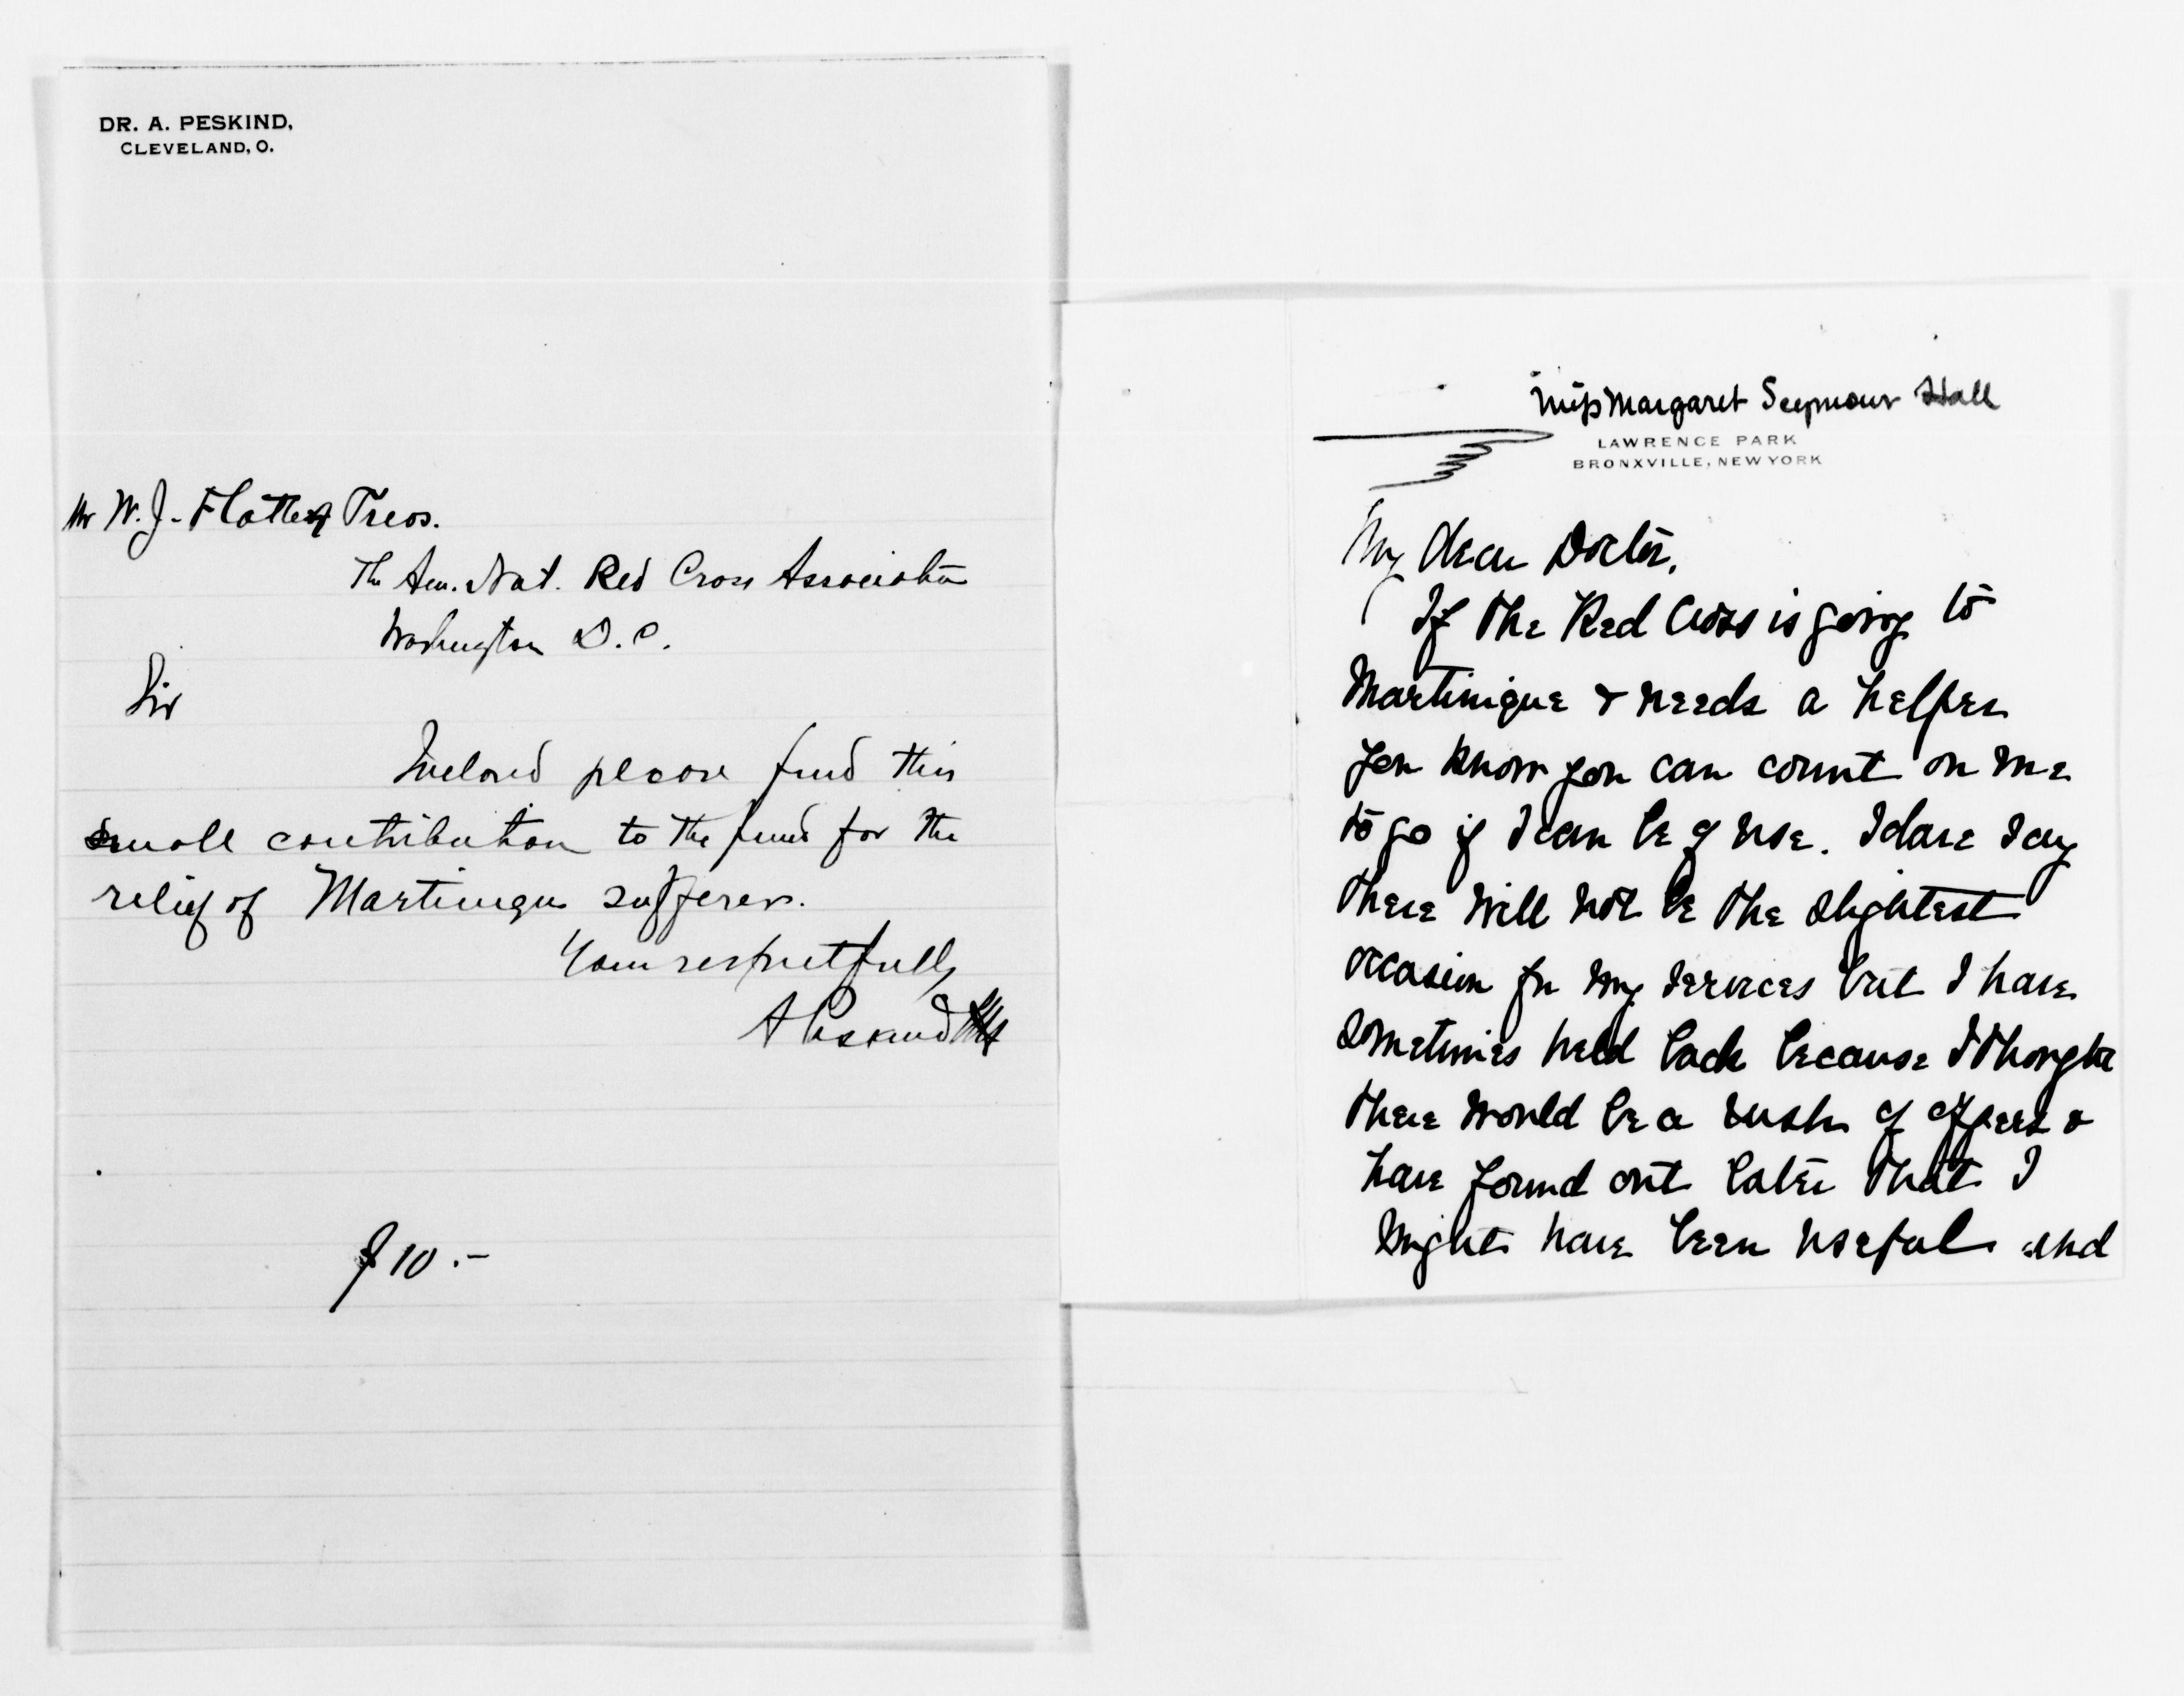 DR. A. PESKIND,
CLEVELAND, O.
Mr W. J. Flather Treas.
The Am. Nat. Red Cross Association
Washington D. C.
Sir
Inclosed please find this
small contribution to the fund for the
relief of Martinique sufferers.
Yours respectfully
A Peskind
$10.-
Miss Margaret Seymour Hall
LAWRENCE PARK
BRONXVILLE, NEW YORK
My dear Doctor,
If the Red Cross is going to
Martinique & needs a helper
you know you can count on me
to go if I can be of use. I dare say
there will not be the slightest
occasion for my services but I have
sometimes held back because I thought
there would be a rush of offers &
have found out later that I
might have been useful and